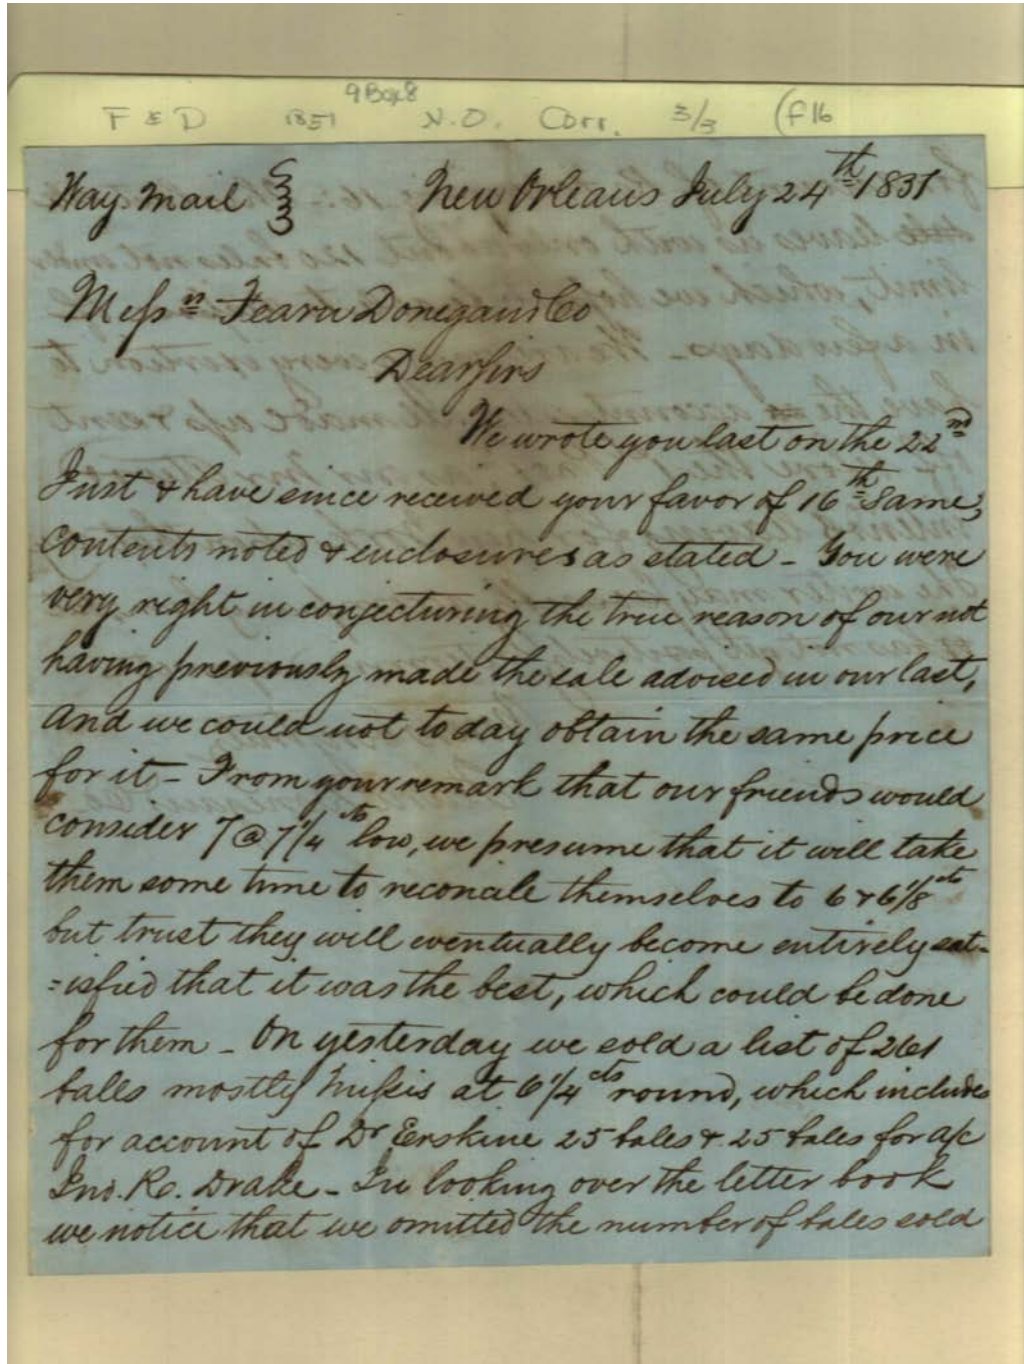 9 Box 8
F & D 1851 N.O. Corr. 3/3 (f16
Way Mail New Orleans July 24th 1851
Messrs Fearn Donegan & Co
Dear Sirs
We wrote you last on the 22nd
Inst & have since received your favor of 16th Same,
contents noted & enclosures as stated - You were
very right in conjecturing the true reason of our not
having previously made the sale advised in our last,
And we could not today obtain the same price
for it - From your remark that our friends would
consider 7 @ 7 1/4 cts low, we presume that it will take
them some time to reconcile themselves to 6 & 6 1/8 cts
but trust they will eventually become entirely sat-
=isfied that it was the best, which could be done
for them - On yesterday we sold a list of 261
bales mostly Missis at 6 1/4 cts round, which includes
for account of Dr Erskine 25 bales & 25 bales for a/c
Jno. R. Drake - In looking over the letter book
we notice that we omitted the number of bales sold